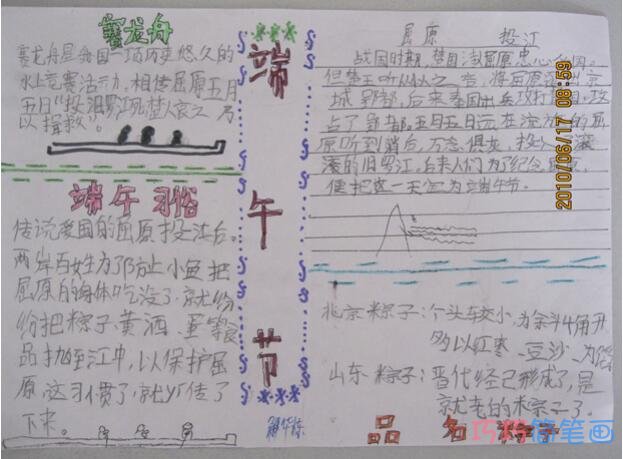 赛龙舟
赛龙舟是我国一项历史悠久的
水上竞赛活动，相传屈原五月
五日"投汨罗江死楚人哀之乃
以揖救"。
端午习俗
传说爱国的屈原投江后。
两岸百姓为了防止小鱼把
屈原的身体吃没了，就纷
纷把粽子黄酒、蛋等食
品抛至江中，以保护屈
原，这习惯了，就
传了
下来。
端
午
节
屈原 投江
战国时期，楚国
屈原忠心
但楚王听
将屈原
京
城
后来秦国出兵攻打
攻
占了
都。五月五日
在
原听到消后，万念俱
投入
滚
滚的旧罗江，后来人们为了纪念
便把这一天定为端午节。
北京粽子：个头较小，为斜4角
多以红枣、豆沙、为
山东粽子：晋代经已形成了，是
就老的粽子了。
品名粽子
巧巧简笔画
2010/06/17 08:59